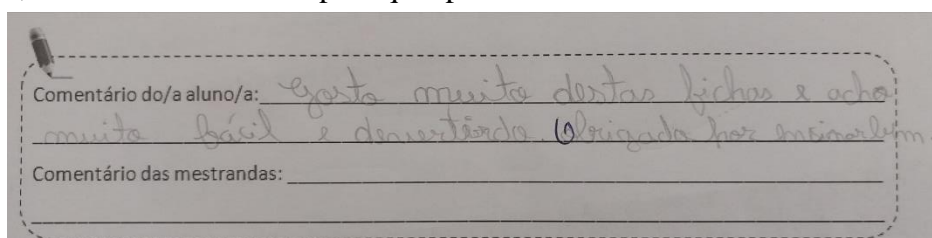 Comentário do/a aluno/a: Gosto muito destas fichas e acho
muito fácil e devertirdo. Obrigada por ensinar bem
Comentário das mestrandas: